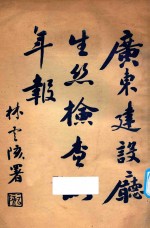 廣東建設廳
生絲檢查
年報
林雲陔署